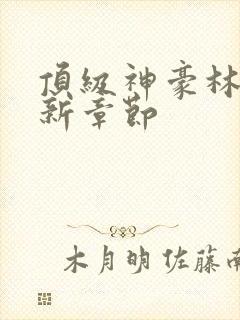 頂級神豪林
新章節
木月明 佐藤南